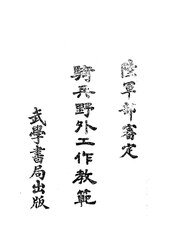 陸軍部審定
騎兵野外工作教範
武學書局出版